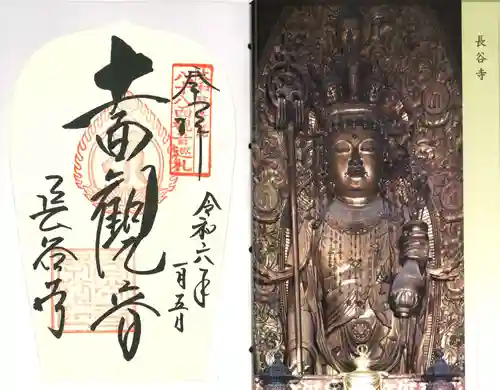 長谷寺
奉拝
令和六年
一月五日
十一面観音
長谷寺